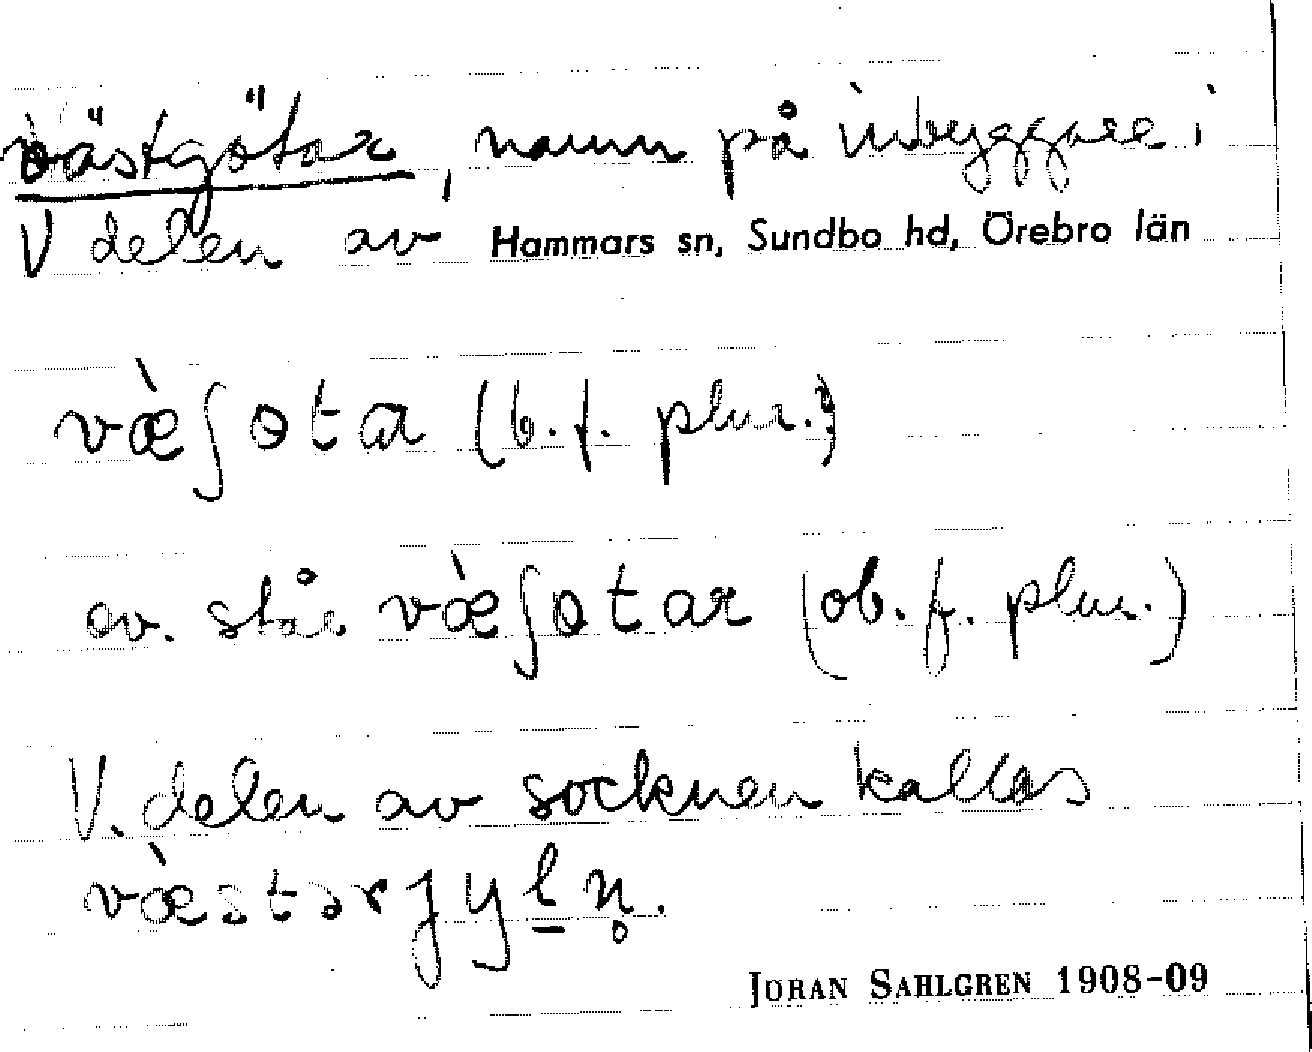 västgötar, namn på inbyggare i
V delen av Hammars sn, Sundbo hd, Örebro län
væ̀ʃɵtar (b.f. plur.)
ov. står væ̀ʃɵtar (ob. f. plur.)
V. delen av socknen kallas
væ̀stərɟyḻn̥.
JÖRAN SAHLGREN 1908-09